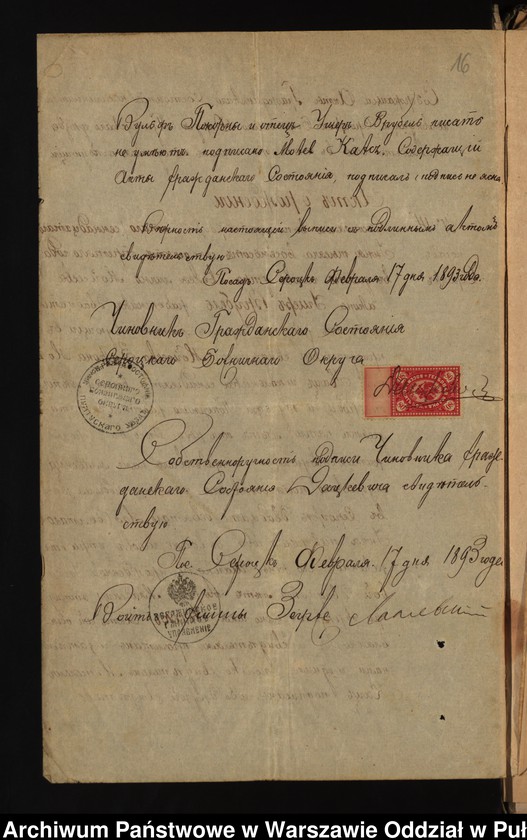 16
Вульфъ Пожарны и отецъ Умеръ Врубель писать
не умѣютъ подписано Motel Katz, Содержащій
Акты Гражданскаго Состоянія подписалъ подпись не ясна
Вѣрность настоящей выписи съ подлиннымъ актомъ
свидѣтельствую
Посадъ Сероцкъ Февраля 17 дня 1893 года.
Чиновникъ Гражданскаго Состоянія
Сероцкаго Божничнаго Округа
Собственноручность подписи Чиновника Граж-
данскаго Состоянія свидѣтель-
ствую
Пос. Сероцкъ Февраля 17 дня 1893 года
Войтъ Гмины Зегрже
УПРАВЛЕНІЕ
Archiwum Państwowe w Warszawie Oddział w Puł